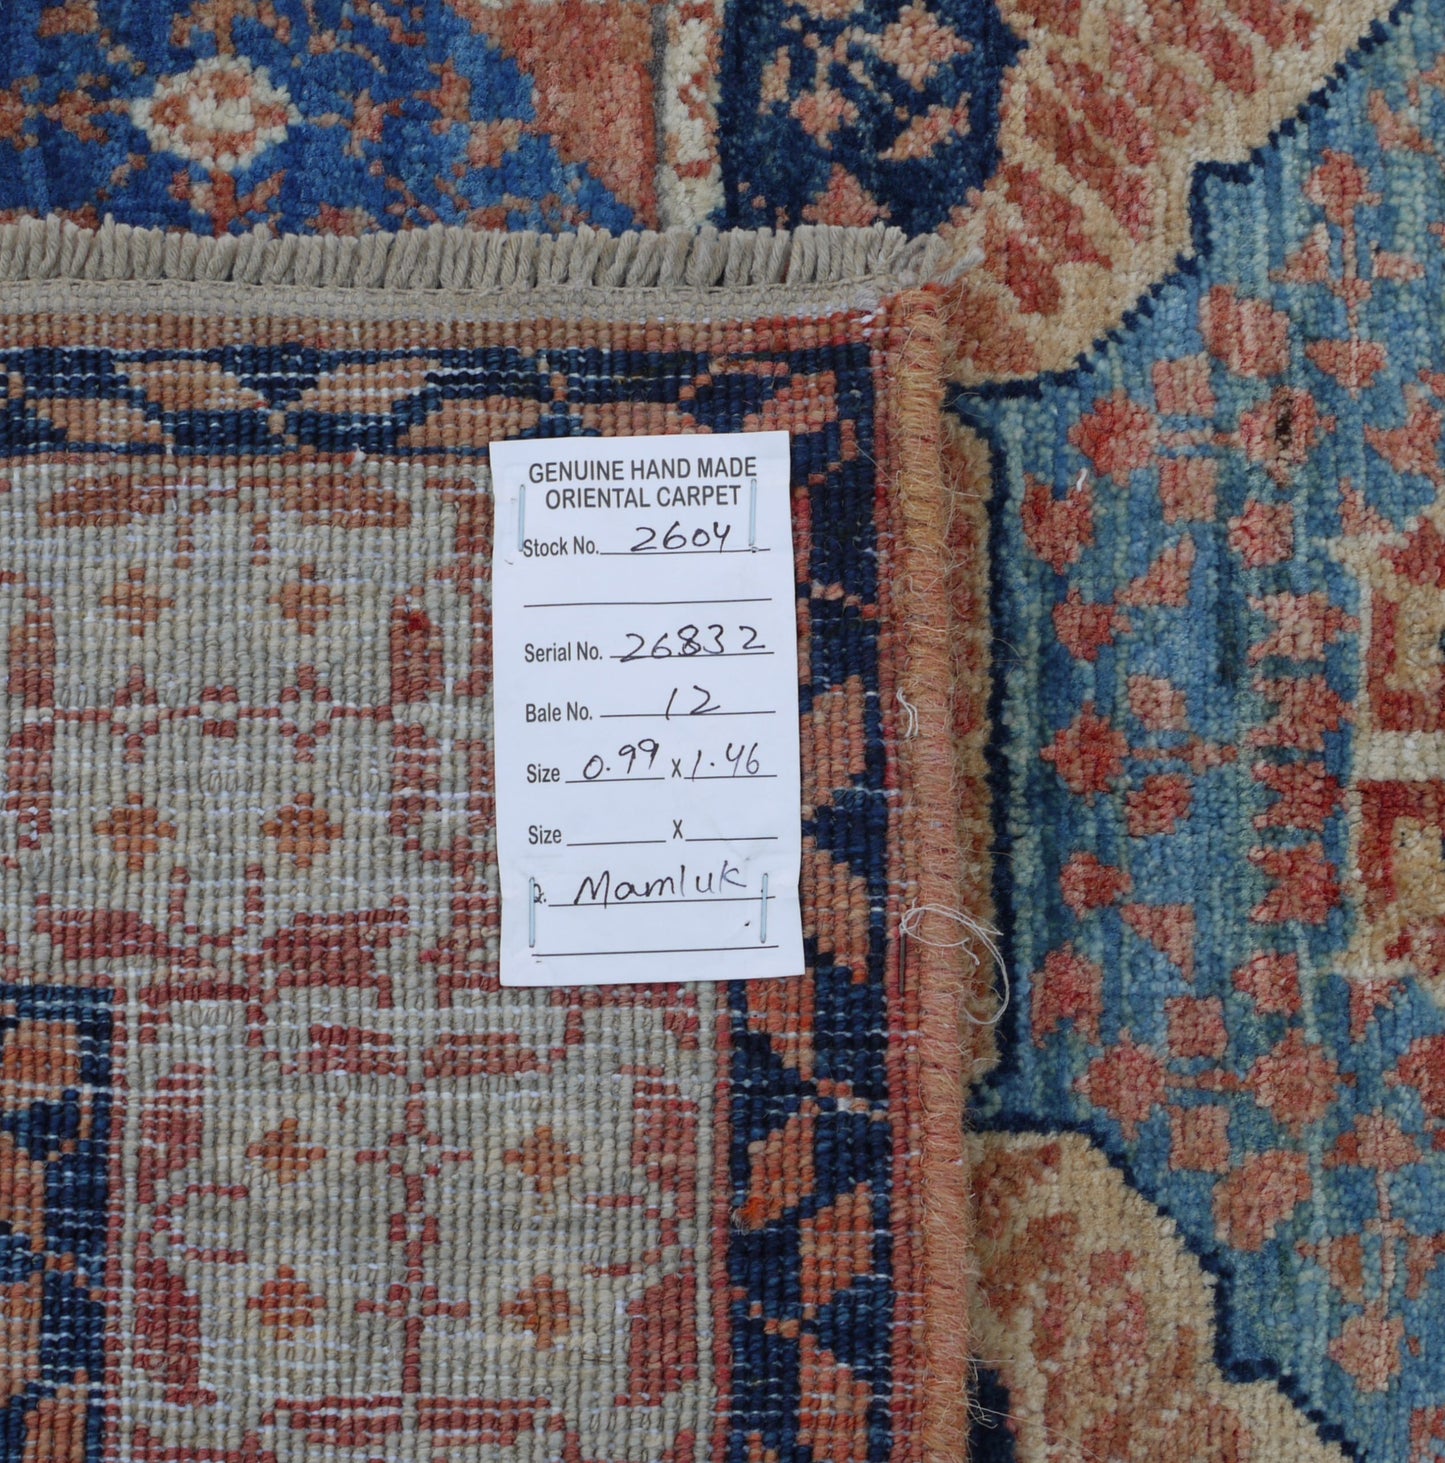 GENUINE HAND MADE
ORIENTAL CARPET
Stock No. 2604
Serial No. 26832
Bale No. 12
Size 0.99 X 1.46
Size X
Q. Mamluk